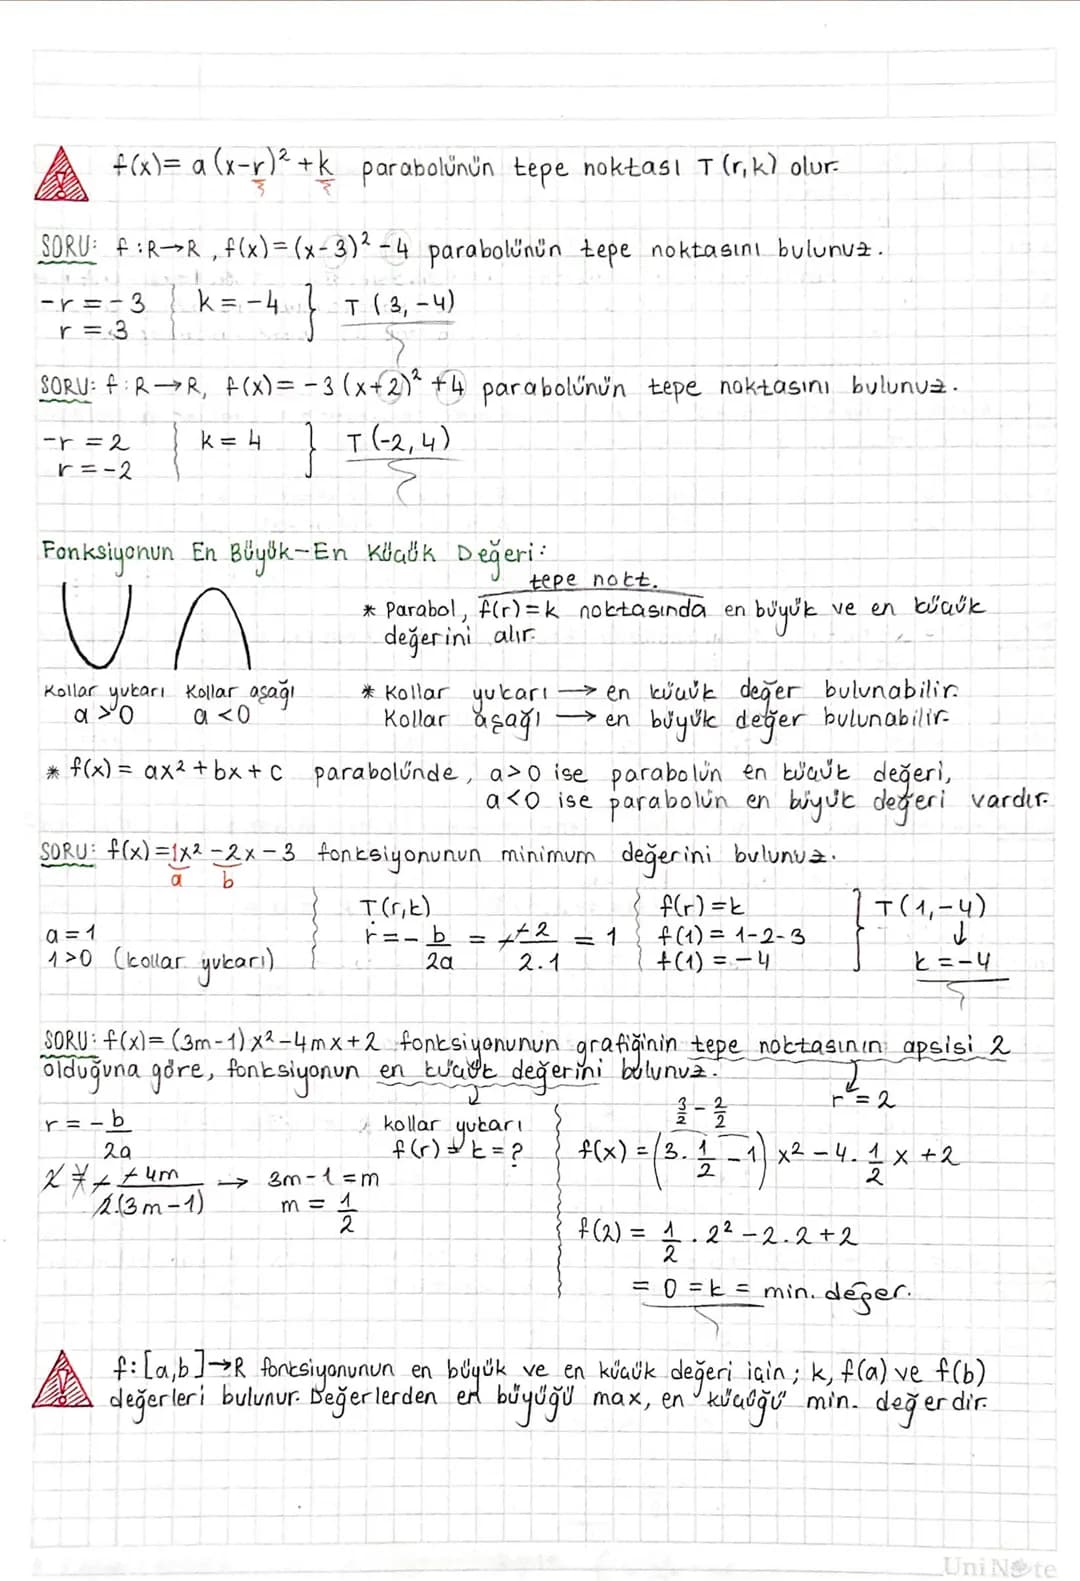 f(x)= a(x-r)² +k parabolünün tepe noktası T(r,k) olur.
SORU: f:R→R, f(x)=(x-3)²-4 parabolünün tepe noktasını bulunuz.
-r=-3 } k=-4 } T(3,-4)
r=3
SORU: f:R→R, f(x)= -3(x+2)² +4 parabolünün tepe noktasını bulunuz.
-r=2 } k=4 } T(-2,4)
r=-2
Fonksiyonun En Büyük-En Küçük Değeri:
tepe nokt.
* Parabol, f(r)=k noktasında en büyük ve en küçük
değerini alır.
Kollar yukarı Kollar aşağı
a>0 a<0
* Kollar yukarı → en küçük değer bulunabilir.
Kollar aşağı → en büyük değer bulunabilir.
* f(x)= ax²+bx+c parabolünde, a>0 ise parabolün en küçük değeri,
a<0 ise parabolün en büyük değeri vardır.
SORU: f(x)=1x²-2x-3 fonksiyonunun minimum değerini bulunuz.
a b
a=1
1>0 (kollar yukarı)
T(r,k)
r=- b/2a = -(-2)/2.1 = 1
f(r)=k
f(1)= 1-2-3
f(1)=-4
T(1,-4)
↓
k=-4
SORU: f(x)= (3m-1)x²-4mx+2 fonksiyonunun grafiğinin tepe noktasının apsisi 2
olduğuna göre, fonksiyonun en küçük değerini bulunuz.
r=2
r=- b/2a
2 = -(-4m)/2.(3m-1) → 3m-1=m
m= 1/2
kollar yukarı
f(r)=k=?
3/2 - 2/2
f(x)=(3. 1/2 -1) x²-4. 1/2 x+2
f(2)= 1/2 . 2²-2.2+2
= 0 =k= min. değer.
f:[a,b]→R fonksiyonunun en büyük ve en küçük değeri için; k, f(a) ve f(b)
değerleri bulunur. Değerlerden en büyüğü max, en küçüğü min. değerdir.
UniNote